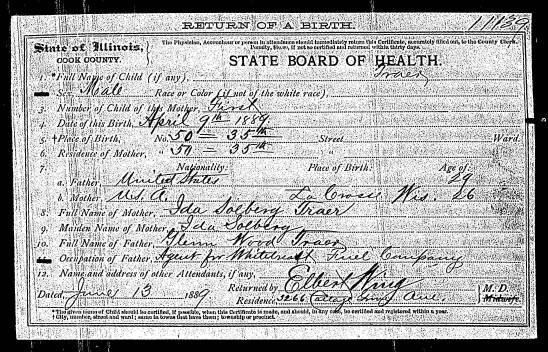 RETURN OF A BIRTH. 11139
State of Illinois, COOK COUNTY.
The Physician, Accoucheur or person in attendance should immediately return this Certificate, accurately filled out, to the County Clerk. Penalty, $10.00, if not so certified and returned within thirty days.
STATE BOARD OF HEALTH.
1. *Full Name of Child (if any). Traer
2. Sex Male Race or Color (if not of the white race)
3. Number of Child of this Mother, First
4. Date of this Birth, April 9th 1889.
5. †Place of Birth, No. 50 = 35th Street Ward.
6. Residence of Mother, " 50 = 35th
7. Nationality: Place of Birth: Age of:
a. Father, United States 29
b. Mother, U.S.A. La Crosse Wis. 26
8. Full Name of Mother, Ida Solberg Traer
9. Maiden Name of Mother, Ida Solberg
10. Full Name of Father, Glenn Wood Traer
Occupation of Father, Agent for Whitebreast Fuel Company
12. Name and address of other Attendants, if any,
Returned by Elbert Wing M. D.
Dated, June 13 1889 Residence, 3266 Cottage Grove Ave. Midwife.
*The given name of Child should be certified, if possible, when this Certificate is made, and should, in any case, be certified and registered within a year.
†City, number, street and ward; same in towns that have them; township or precinct.